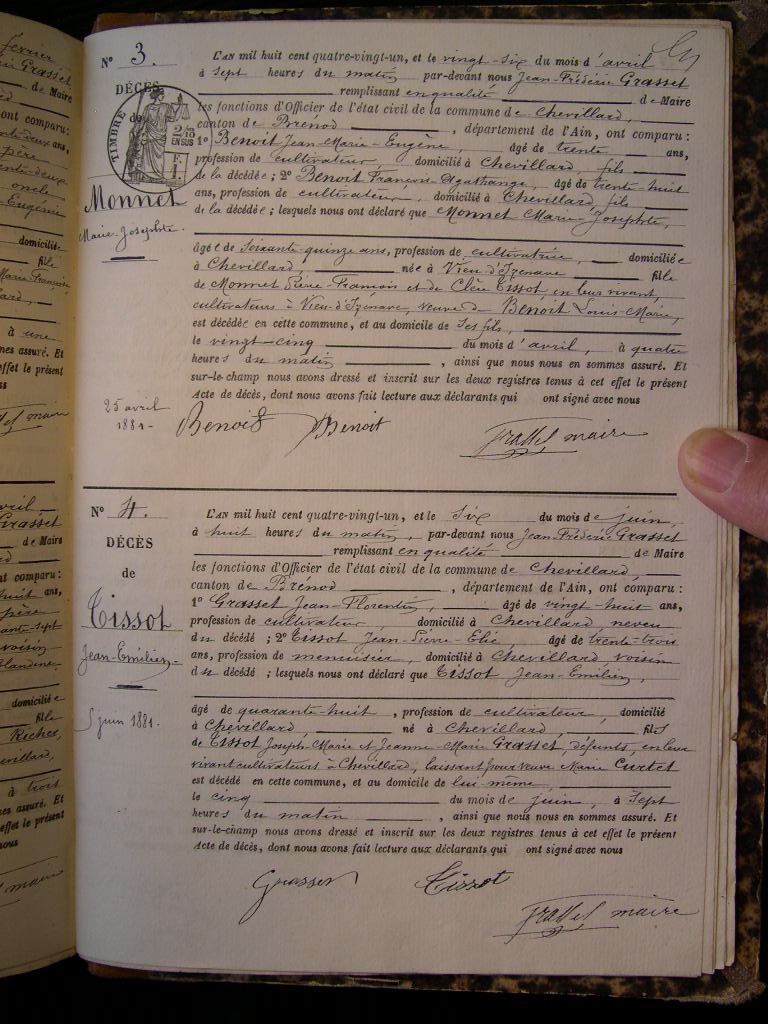 N° 3.
DÉCÈS
de
TIMBRE
2/10 EN SUS
F. 1.
Monnet
Marie-Josephte.
L'AN mil huit cent quatre-vingt-un, et le vingt-six du mois d'avril
à sept heures du matin par-devant nous Jean-Frédéric Grasset
remplissant en qualité de Maire
les fonctions d'Officier de l'état civil de la commune de Chevillard,
canton de Brénod, département de l'Ain, ont comparu :
1° Benoit Jean-Marie-Eugène, âgé de trente ans,
profession de cultivateur, domicilié à Chevillard, fils
de la décédée ; 2° Benoit François-Agathange, âgé de trente-huit
ans, profession de cultivateur, domicilié à Chevillard, fils
de la décédée ; lesquels nous ont déclaré que Monnet Marie-Josephte,
âgée de soixante-quinze ans, profession de cultivatrice, domiciliée
à Chevillard née à Vieu-d'Izenave fille
de Monnet Pierre-François et de Clère Tissot, en leur vivant,
cultivateurs à Vieu-d'Izenave, veuve de Benoit Louis-Marie,
est décédée en cette commune, et au domicile de ses fils,
le vingt-cinq du mois d'avril, à quatre
heures du matin, ainsi que nous nous en sommes assuré. Et
sur-le-champ nous avons dressé et inscrit sur les deux registres tenus à cet effet le présent
Acte de décès, dont nous avons fait lecture aux déclarants qui ont signé avec nous
25 avril
1881-
Benoit Benoit
Grasset maire
N° 4.
DÉCÈS
de
Tissot
Jean-Emilien-
5 juin 1881.
L'AN mil huit cent quatre-vingt-un, et le six du mois de juin,
à huit heures du matin, par-devant nous Jean-Frédéric Grasset
remplissant en qualité de Maire
les fonctions d'Officier de l'état civil de la commune de Chevillard,
canton de Brénod, département de l'Ain, ont comparu :
1° Grasset Jean-Florentin, âgé de vingt-huit ans,
profession de cultivateur, domicilié à Chevillard neveu
du décédé ; 2° Tissot Jean-Pierre-Elie, âgé de trente-trois
ans, profession de menuisier, domicilié à Chevillard, voisin
du décédé ; lesquels nous ont déclaré que Tissot Jean-Emilien,
âgé de quarante-huit, profession de cultivateur, domicilié
à Chevillard, né à Chevillard, fils
de Tissot Joseph-Marie et Jeanne-Marie Grasset, défunts, en leur
vivant cultivateurs à Chevillard, laissant pour veuve Marie Curtet
est décédé en cette commune, et au domicile de lui-même,
le cinq du mois de juin, à sept
heures du matin, ainsi que nous nous en sommes assuré. Et
sur-le-champ nous avons dressé et inscrit sur les deux registres tenus à cet effet le présent
Acte de décès, dont nous avons fait lecture aux déclarants qui ont signé avec nous
Grasset Tissot
Grasset maire